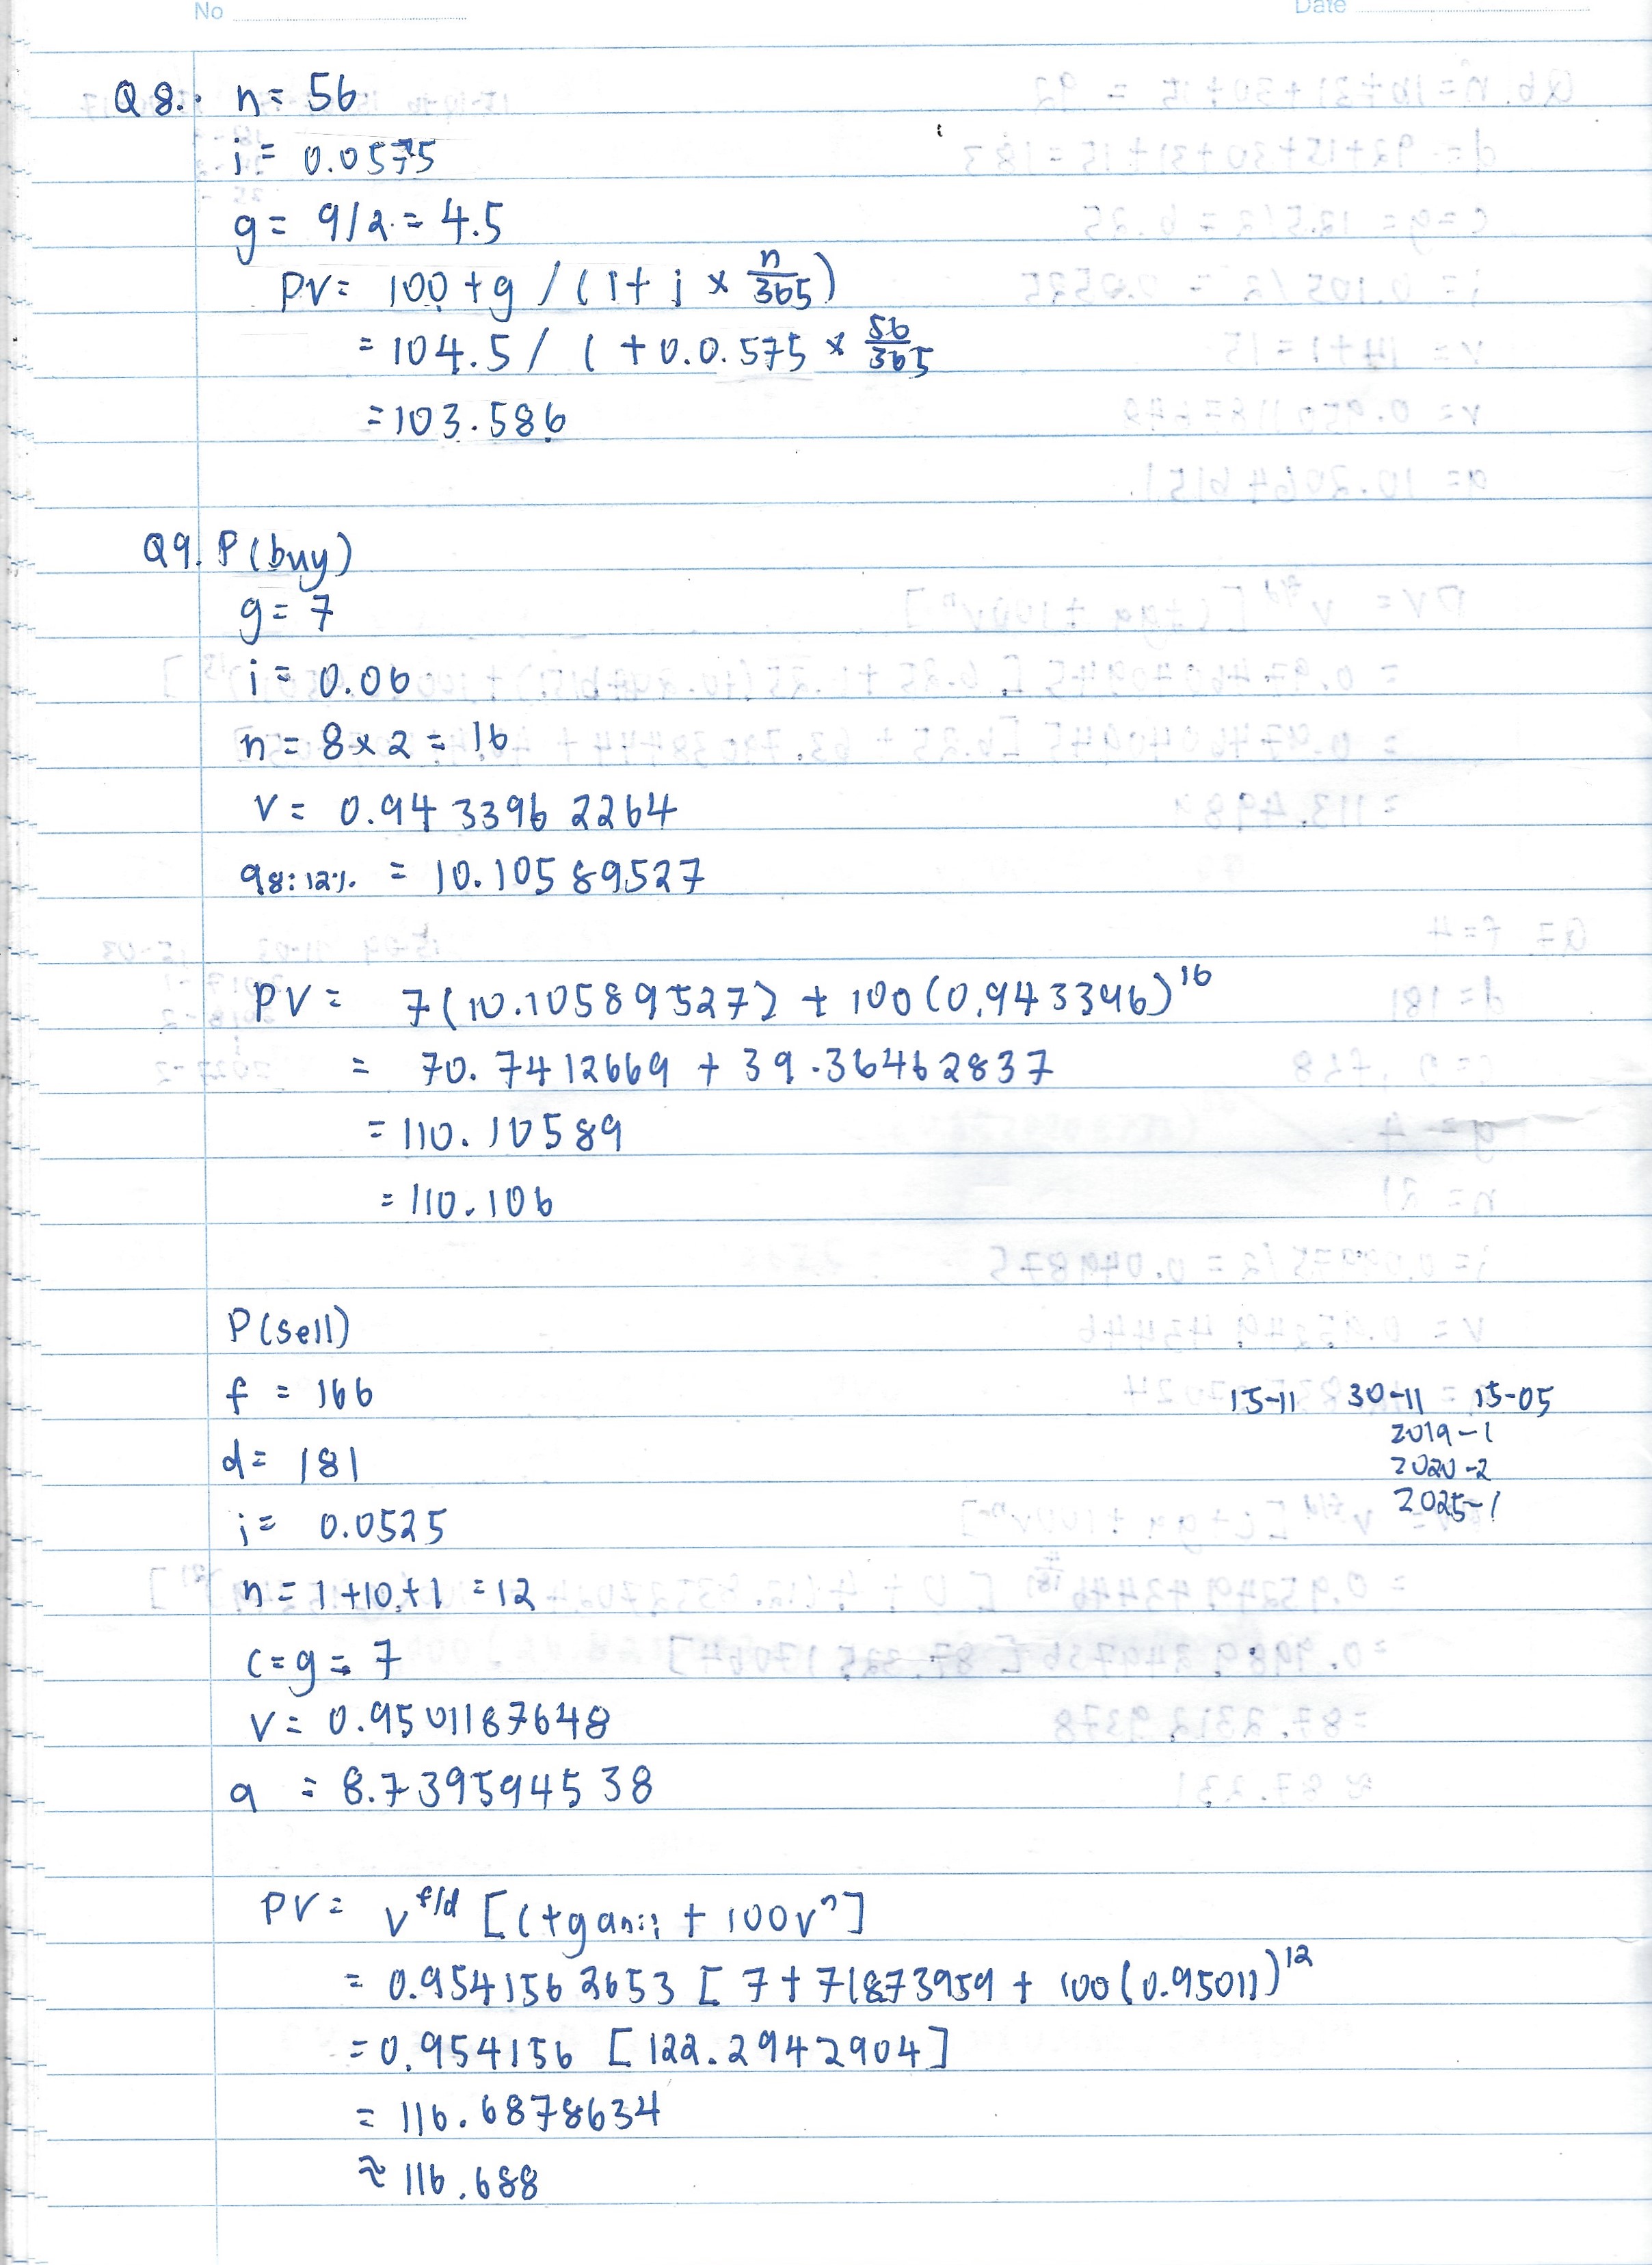 No
Date
Q8. n= 56
i = 0.0575
g= 9/2 = 4.5
PV= 100+g / (1+ i × n/365)
= 104.5 / 1 + 0.0.575 × 56/365
= 103.586
Q9. P(buy)
g= 7
i = 0.06
n = 8×2 = 16
v= 0.943396 2264
a8:12%. = 10.10589527
PV = 7(10.10589527) + 100(0.943396)^16
= 70.7412669 + 39.36462837
= 110.10589
= 110.106
P(sell)
f = 166
15-11 30-11 15-05
2019-1
d= 181
2020-2
2025-1
i= 0.0525
n = 1+10+1 = 12
c=g= 7
v= 0.9501187648
a = 8.739594538
PV= v^f/d [c+gan:i + 100v^n]
= 0.9541562653 [7+7(873959 + 100(0.95011)^12
= 0.954156 [122.2942904]
= 116.6878634
≈ 116.688